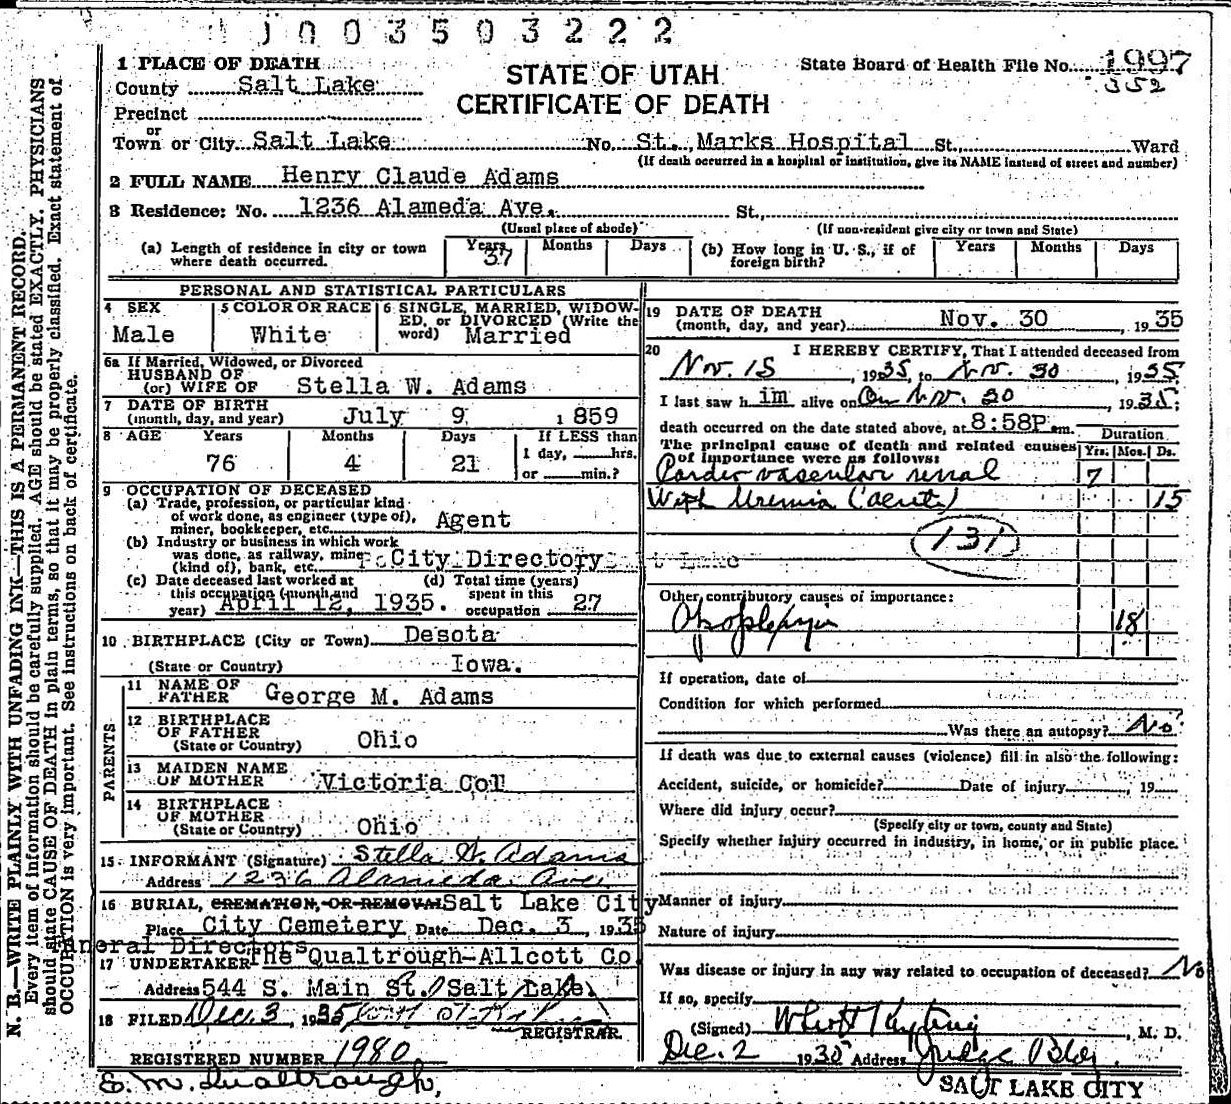 J 0 0 3 5 0 3 2 2 2
1 PLACE OF DEATH
County Salt Lake
Precinct
or
Town or City Salt Lake
STATE OF UTAH
CERTIFICATE OF DEATH
State Board of Health File No. 1997
352
No. St. Marks Hospital St., Ward
(If death occurred in a hospital or institution, give its NAME instead of street and number)
2 FULL NAME Henry Claude Adams
3 Residence: No. 1236 Alameda Ave. St.,
(Usual place of abode) (If non-resident give city or town and State)
(a) Length of residence in city or town where death occurred. Years 37 Months Days
(b) How long in U. S., if of foreign birth? Years Months Days
PERSONAL AND STATISTICAL PARTICULARS
4 SEX
Male
5 COLOR OR RACE
White
6 SINGLE, MARRIED, WIDOWED, or DIVORCED (Write the word) Married
6a If Married, Widowed, or Divorced
HUSBAND OF
(or) WIFE OF Stella W. Adams
7 DATE OF BIRTH
(month, day, and year) July 9 1859
8 AGE Years Months Days If LESS than
76 4 21 1 day, hrs.
or min.?
9 OCCUPATION OF DECEASED
(a) Trade, profession, or particular kind
of work done, as engineer (type of),
miner, bookkeeper, etc. Agent
(b) Industry or business in which work
was done, as railway, mine
(kind of), bank, etc. City Directory
(c) Date deceased last worked at
this occupation (month and
year) April 12, 1935.
(d) Total time (years)
spent in this
occupation 27
10 BIRTHPLACE (City or Town) Desota
(State or Country) Iowa.
PARENTS
11 NAME OF
FATHER George M. Adams
12 BIRTHPLACE
OF FATHER
(State or Country) Ohio
13 MAIDEN NAME
OF MOTHER Victoria Col
14 BIRTHPLACE
OF MOTHER
(State or Country) Ohio
15 INFORMANT (Signature) Stella W. Adams
Address 1236 Alameda Ave
16 BURIAL, CREMATION, OR REMOVAL Salt Lake City
Place City Cemetery Date Dec. 3, 1935
neral Directors
17 UNDERTAKER The Qualtrough-Allcott Co.
Address 544 S. Main St. Salt Lake
18 FILED Dec. 3, 1935
REGISTRAR.
REGISTERED NUMBER 1980
E. M. Qualtrough,
19 DATE OF DEATH
(month, day, and year) Nov. 30, 1935
20 I HEREBY CERTIFY, That I attended deceased from
Nov. 15, 1935, to Nov. 30, 1935.
I last saw h im alive on On Nov. 30, 1935;
death occurred on the date stated above, at 8:58P m.
The principal cause of death and related causes
of importance were as follows:
Duration
Yrs. Mos. Ds.
Cardio vascular renal 7
With Uremia (acute) 15
131
Other contributory causes of importance:
Apoplexy 18
If operation, date of
Condition for which performed
Was there an autopsy? No
If death was due to external causes (violence) fill in also the following:
Accident, suicide, or homicide? Date of injury, 19
Where did injury occur?
(Specify city or town, county and State)
Specify whether injury occurred in industry, in home, or in public place.
Manner of injury
Nature of injury
Was disease or injury in any way related to occupation of deceased? No
If so, specify
(Signed) M. D.
Dec. 2 1935 Address Judge Bldg.
SALT LAKE CITY
N. B.—WRITE PLAINLY WITH UNFADING INK—THIS IS A PERMANENT RECORD.
Every item of information should be carefully supplied. AGE should be stated EXACTLY. PHYSICIANS
should state CAUSE OF DEATH in plain terms, so that it may be properly classified. Exact statement of
OCCUPATION is very important. See instructions on back of certificate.